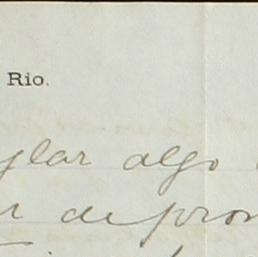 Rio.
glar algo
r de pron